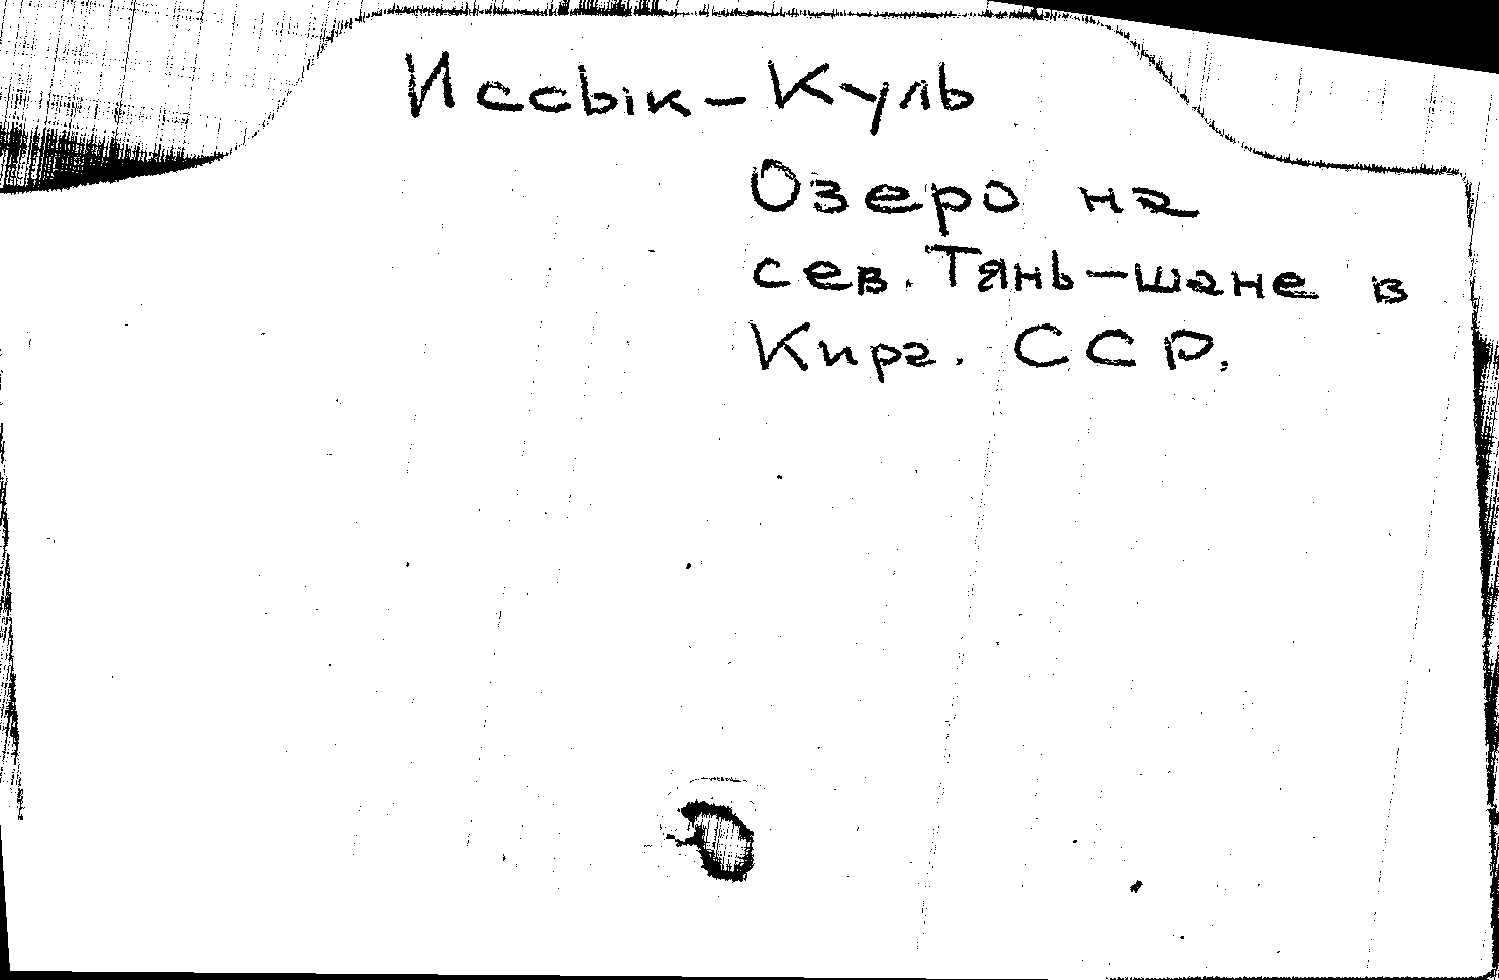 Иссык-Куль
Озеро на
сев. Тянь-шане в
Кирг. ССР.